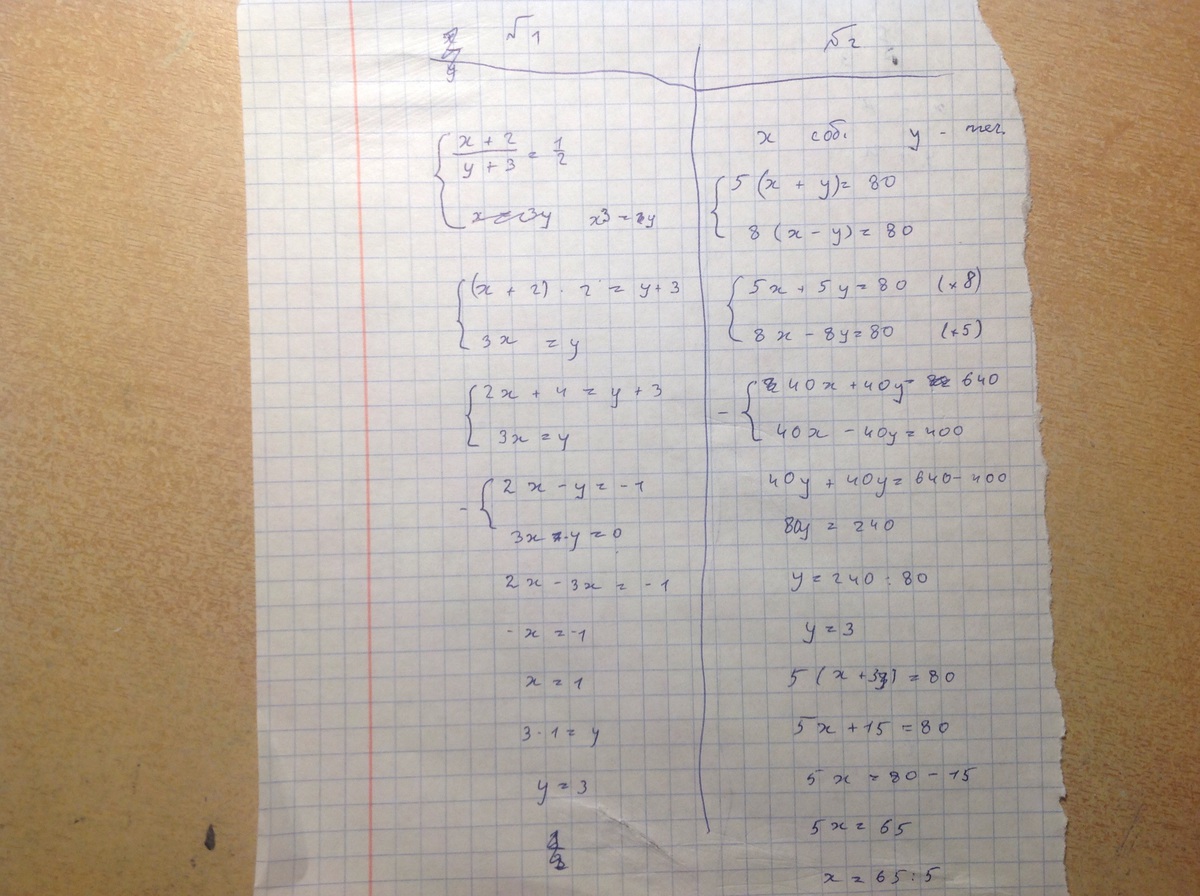 №1
x + 2 / y + 3 = 1/2
x = 3y x3 = y
(x + 2) · 2 = y + 3
3x = y
2x + 4 = y + 3
3x = y
- 2x - y = -1
3x - y = 0
2x - 3x = -1
-x = -1
x = 1
3 · 1 = y
y = 3
№2
x соб. y - теч.
5 (x + y) = 80
8 (x - y) = 80
5x + 5y = 80 (×8)
8x - 8y = 80 (×5)
- 40x + 40y = 640
40x - 40y = 400
40y + 40y = 640 - 400
80y = 240
y = 240 : 80
y = 3
5 (x + 3) = 80
5x + 15 = 80
5x = 80 - 15
5x = 65
x = 65 : 5